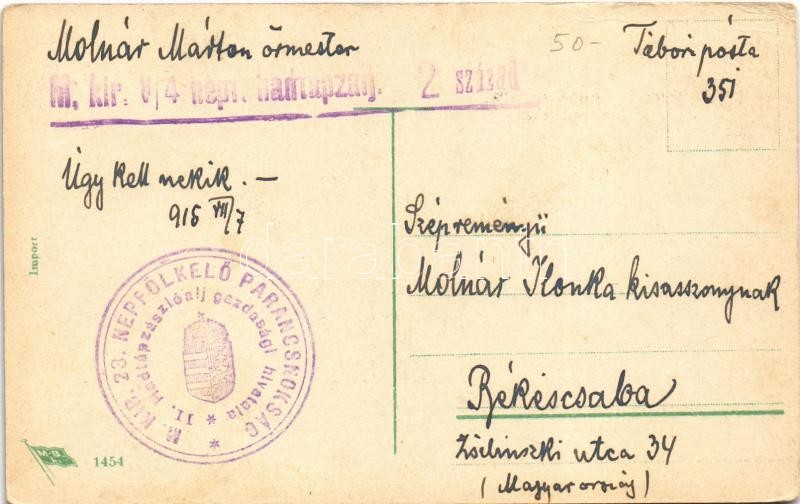 Molnár Márton őrmester
50-
Tábori pósta
351
M, kir. V/4 népf. hadtápzalj. 2 század
Úgy kell nekik. —
915 VII/7
Import
M. KIR. 23. NÉPFÖLKELŐ PARANCSNOKSÁG
II. Hadtápzászlóalj gazdasági hivatala
Szépreményű
Molnár Ilonka kisasszonynak
Békéscsaba
Zsilinszki utca 34
(Magyarország)
M.B.L.
1454
darabanth